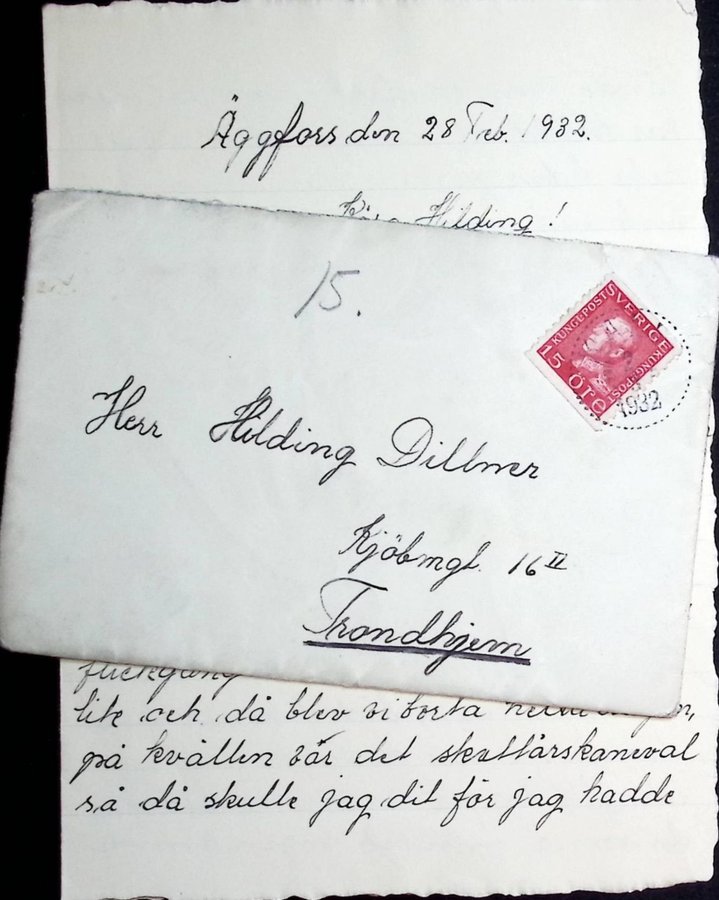 Äggfors den 28 Feb. 1932.
Kära Hilding!
15.
SVERIGE
KUNGL.POST
KUNGL.POST
15 öre
1932
Herr Hilding Dillner
Kjöbmgt. 16 II
Trondhjem
lite och då blev vi borta
på kvällen var det skottårskaneval
så då skulle jag dit för jag hadde